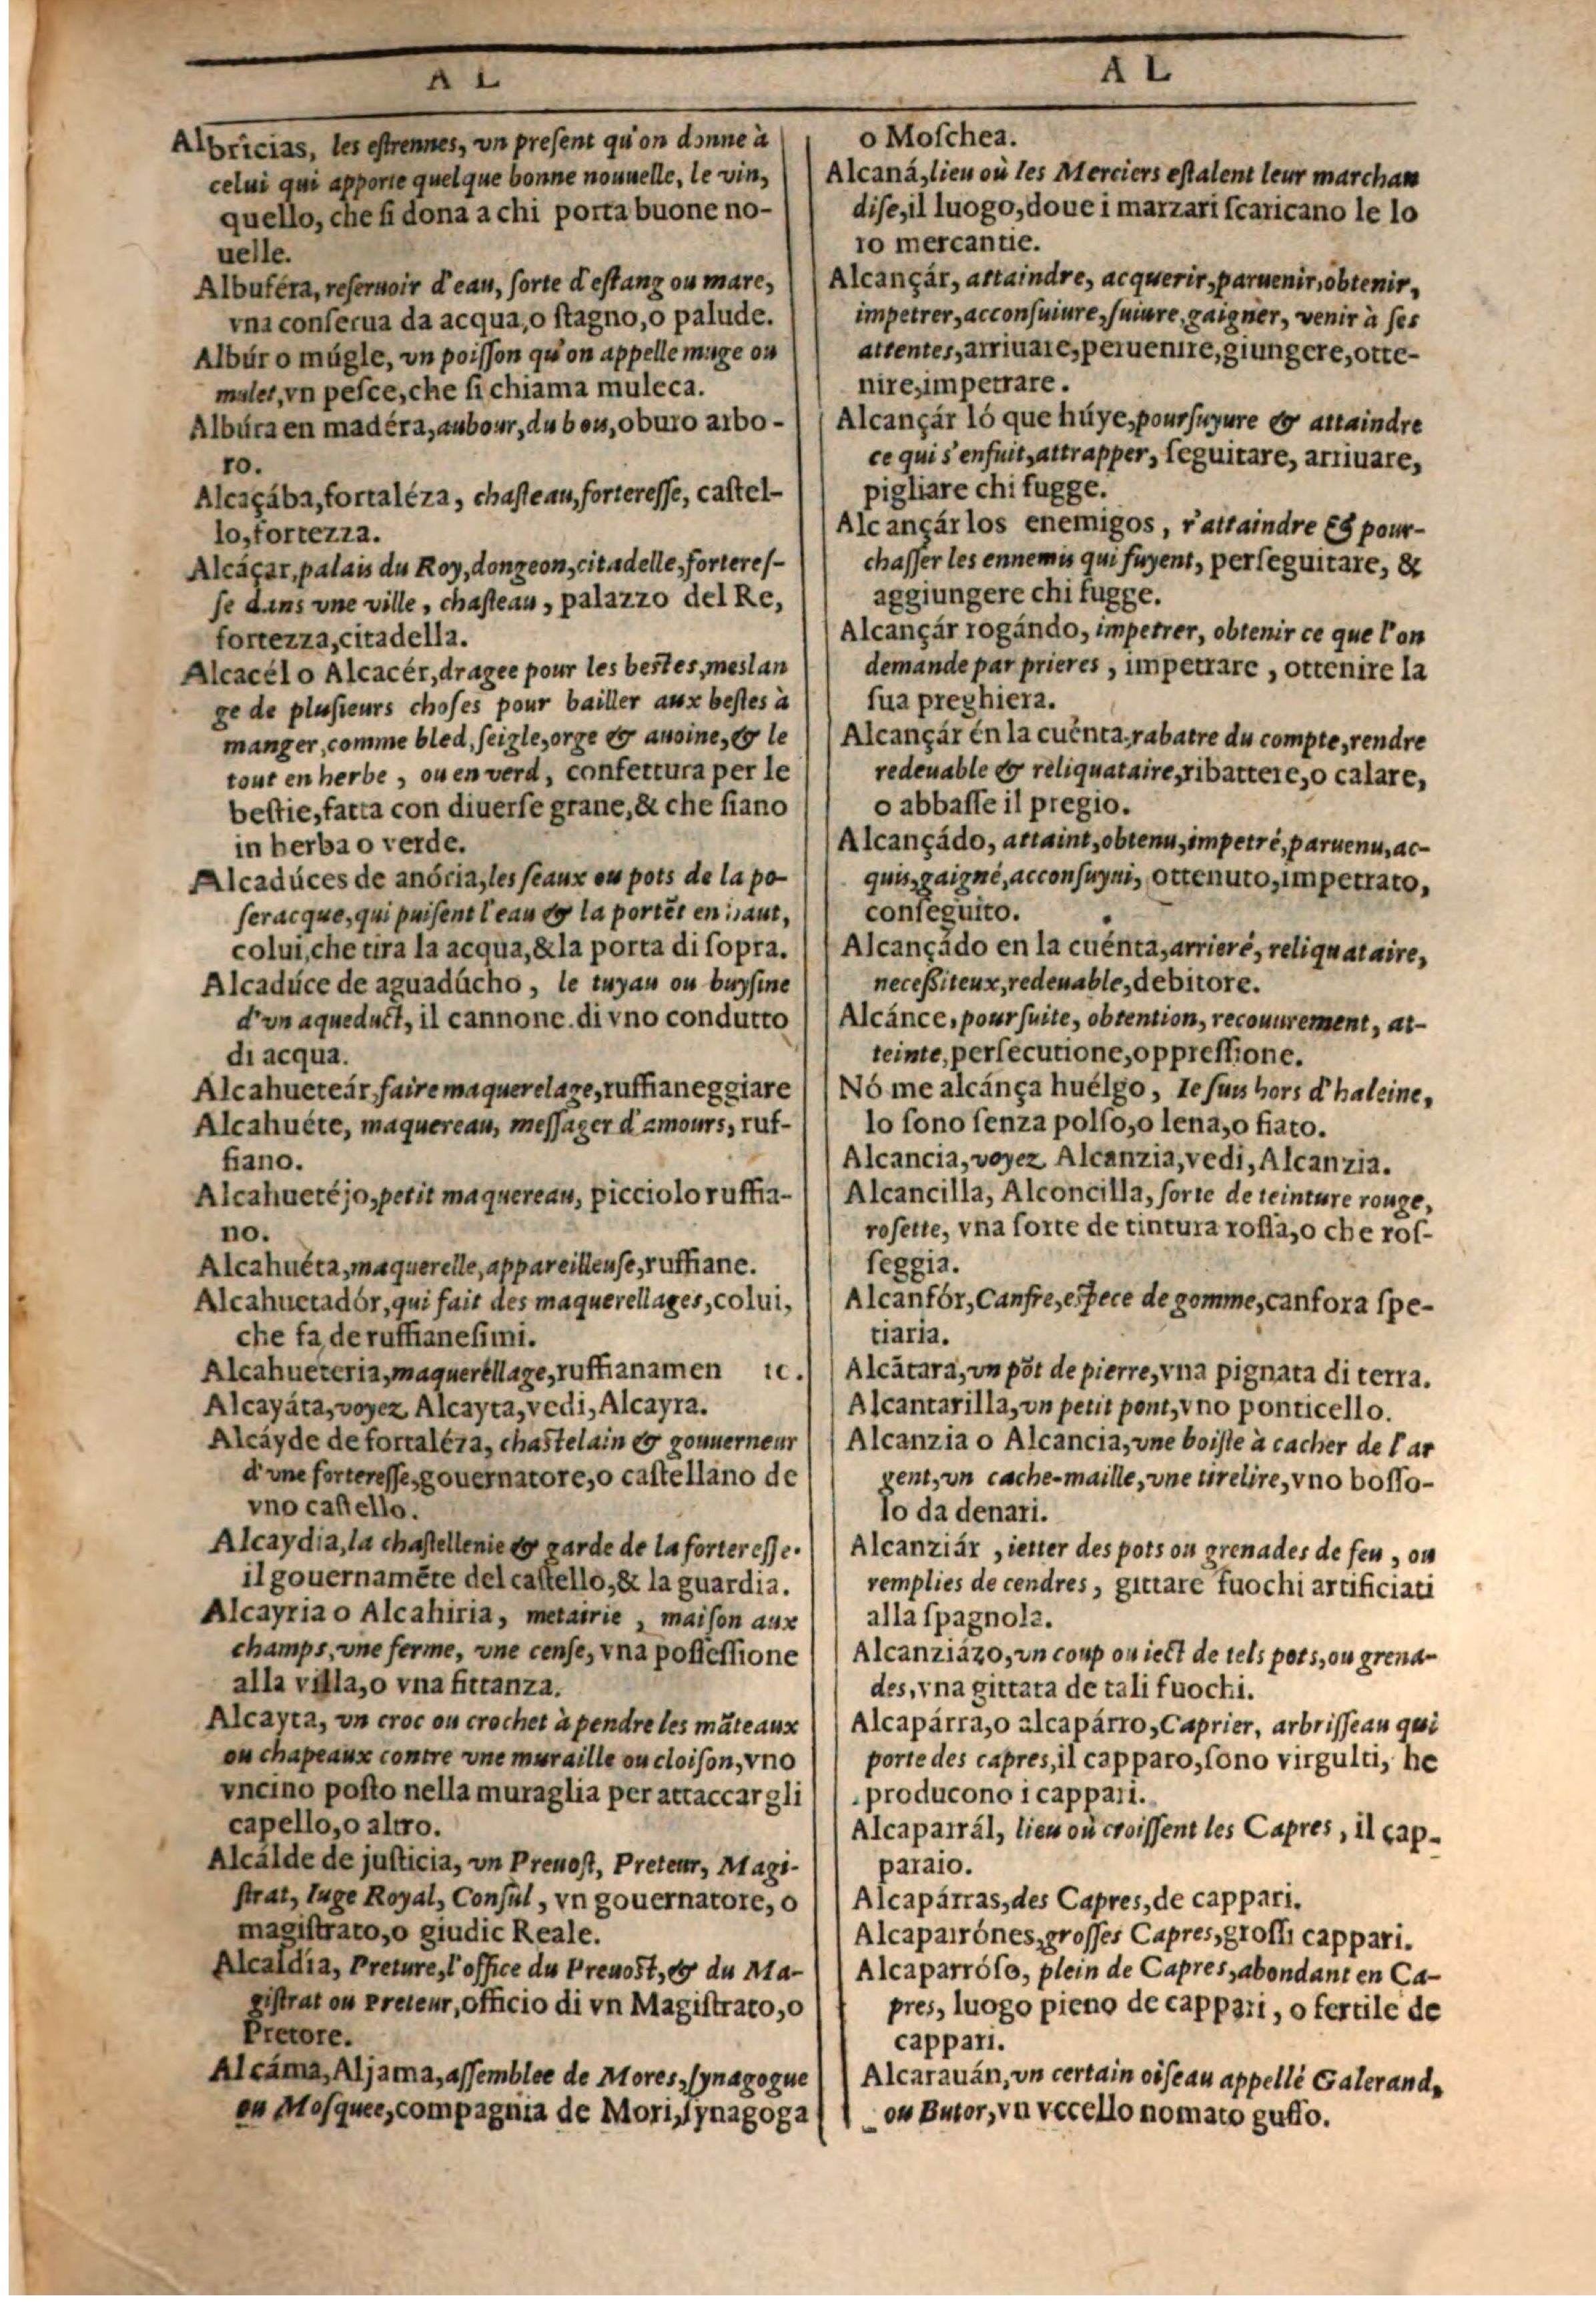 A L
Albricias, les estrennes, vn preſent qu'on donne à
celui qui apporte quelque bonne nouuelle, le vin,
quello, che ſi dona a chi porta buone no-
uelle.
Albuféra, reſeruoir d'eau, ſorte d'eſtang ou mare,
vna conſerua da acqua, o ſtagno, o palude.
Albúr o múgle, vn poiſſon qu'on appelle muge ou
mulet, vn peſce, che ſi chiama muleca.
Albúra en madéra, aubour, du bou, oburo arbo-
ro.
Alcaçába, fortaléza, chaſteau, fortereſſe, caſtel-
lo, fortezza.
Alcáçar, palais du Roy, dongeon, citadelle, fortereſ-
ſe dans vne ville, chaſteau, palazzo del Re,
fortezza, citadella.
Alcacél o Alcacér, dragee pour les beſtes, meslan
ge de pluſieurs choſes pour bailler aux beſtes à
manger, comme bled, ſeigle, orge & auoine, & le
tout en herbe, ou en verd, confettura per le
beſtie, fatta con diuerſe grane, & che ſiano
in herba o verde.
Alcadúces de anória, les ſeaux ou pots de la po-
ſeracque, qui puiſent l'eau & la portẽt en haut,
colui, che tira la acqua, & la porta di ſopra.
Alcadúce de aguadúcho, le tuyau ou buyſine
d'vn aqueduct, il cannone. di vno condutto
di acqua.
Alcahueteár, faire maquerelage, ruffianeggiare
Alcahuéte, maquereau, meſſager d'amours, ruf-
fiano.
Alcahuetéjo, petit maquereau, picciolo ruffia-
no.
Alcahuéta, maquerelle, appareilleuſe, ruffiane.
Alcahuetadór, qui fait des maquerellages, colui,
che fa, de ruffianeſimi.
Alcahueteria, maquerellage, ruffianamen tc.
Alcayáta, voyez Alcayta, vedi, Alcayra.
Alcáyde de fortaléza, chaſtelain & gouuerneur
d'vne fortereſſe, gouernatore, o caſtellano de
vno caſtello.
Alcaydia, la chaſtellenie & garde de la fortereſſe.
il gouernamẽte del caſtello, & la guardia.
Alcayria o Alcahiria, metairie, maiſon aux
champs, vne ferme, vne cenſe, vna poſſeſſione
alla villa, o vna fittanza.
Alcayta, vn croc ou crochet à pendre les mãteaux
ou chapeaux contre vne muraille ou cloiſon, vno
vncino poſto nella muraglia per attaccar gli
capello, o altro.
Alcálde de juſticia, vn Preuoſt, Preteur, Magi-
ſtrat, Iuge Royal, Conſul, vn gouernatore, o
magiſtrato, o giudic Reale.
Alcaldía, Preture, l'office du Preuoſt, & du Ma-
giſtrat ou Preteur, officio di vn Magiſtrato, o
Pretore.
Alcáma, Aljama, aſſemblee de Mores, ſynagogue
ou Moſquee, compagnia de Mori, ſynagoga
A L
o Moſchea.
Alcaná, lieu où les Merciers eſtalent leur marchan
diſe, il luogo, doue i marzari ſcaricano le lo
ro mercantie.
Alcançár, attaindre, acquerir, paruenir, obtenir,
impetrer, acconſuiure, ſuiure, gaigner, venir à ſes
attentes, arriuare, peruenire, giungere, otte-
nire, impetrare.
Alcançár ló que húye, pourſuyure & attaindre
ce qui s'enfuit, attrapper, ſeguitare, arriuare,
pigliare chi fugge.
Alcançár los enemigos, r'attaindre & pour-
chaſſer les ennemis qui fuyent, perſeguitare, &
aggiungere chi fugge.
Alcançár rogándo, impetrer, obtenir ce que l'on
demande par prieres, impetrare, ottenire la
ſua preghiera.
Alcançár én la cuénta, rabatre du compte, rendre
redeuable & reliquataire, ribattere, o calare,
o abbaſſe il pregio.
Alcançádo, attaint, obtenu, impetré, paruenu, ac-
quis, gaigné, acconſuyui, ottenuto, impetrato,
conſeguito.
Alcançádo en la cuénta, arrieré, reliquataire,
neceſſiteux, redeuable, debitore.
Alcánce, pourſuite, obtention, recouurement, at-
teinte, perſecutione, oppreſſione.
Nó me alcánça huélgo, Ie ſuis hors d'haleine,
Io ſono ſenza polſo, o lena, o fiato.
Alcancia, voyez Alcanzia, vedi, Alcanzia.
Alcancilla, Alconcilla, ſorte de teinture rouge,
roſette, vna ſorte de tintura roſſa, o che roſ-
ſeggia.
Alcanfór, Canfre, eſpece de gomme, canfora ſpe-
tiaria.
Alcãtara, vn pot de pierre, vna pignata di terra.
Alcantarilla, vn petit pont, vno ponticello.
Alcanzia o Alcancia, vne boiſte à cacher de l'ar
gent, vn cache-maille, vne tirelire, vno boſſo-
lo da denari.
Alcanziár, ietter des pots ou grenades de feu, ou
remplies de cendres, gittare fuochi artificiati
alla ſpagnola.
Alcanziázo, vn coup ou iect de tels pots, ou grena-
des, vna gittata de tali fuochi.
Alcapárra, o alcapárro, Caprier, arbriſſeau qui
porte des capres, il capparo, ſono virgulti, he
producono i cappari.
Alcaparrál, lieu où croiſſent les Capres, il çap-
paraio.
Alcapárras, des Capres, de cappari.
Alcaparrónes, groſſes Capres, groſſi cappari.
Alcaparróſo, plein de Capres, abondant en Ca-
pres, luogo pieno de cappari, o fertile de
cappari.
Alcarauán, vn certain oiſeau appellé Galerand,
ou Butor, vn vccello nomato guffo.